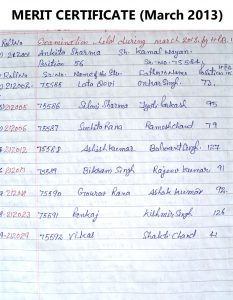 MERIT CERTIFICATE (March 2013)
Roll No Examination held during march 2013 by H.P.B.
Ankita Sharma Sh. Kamal Nayan
Position 56 Sr. No. 75584
Roll No. Sr. No. Name of the Stu. Father's Name Position in
212002 75585 Lata Devi Onkar Singh 73
212005 75586 Jyoti Parkash 95
212006 75587 Sunkita Rana Ramesh Chand 79
212012 75588 Ashish Kumar Balwant Singh 127
212021 75589 Bikram Singh Rajeev Kumar 91
75590 Gourav Rana Ashok Kumar 92
212023 75591 Pankaj Kishmir Singh 126
212029 75592 Vikas Chand 41